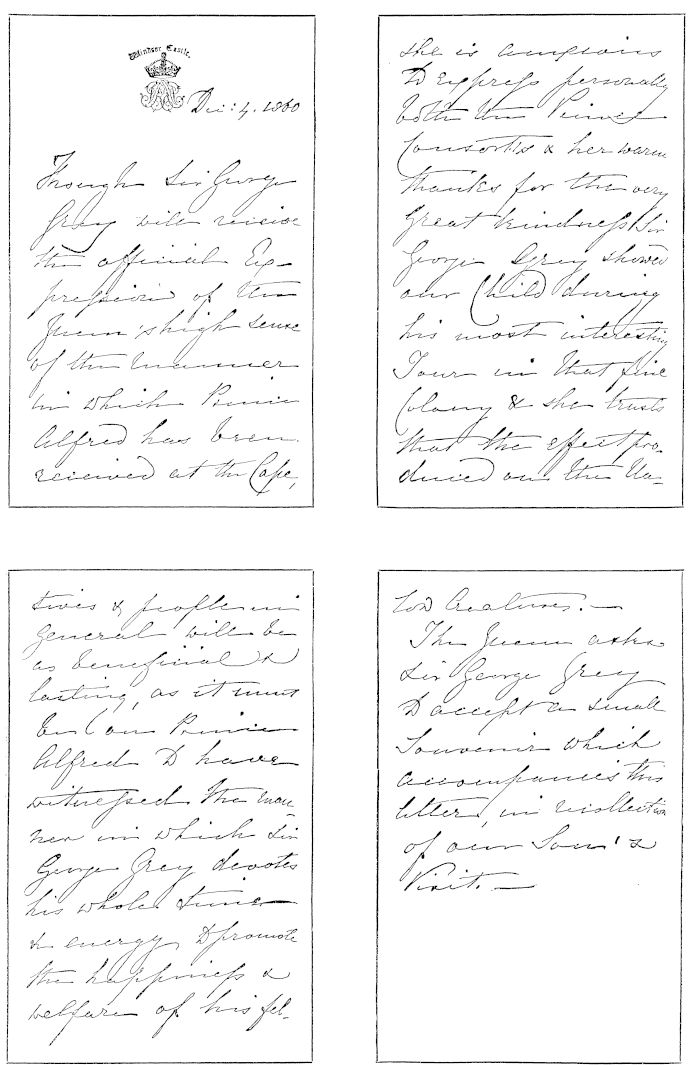 Windsor Castle.
Dec: 4. 1860
Though Sir George
Grey will receive
the official Ex-
pression of the
Queen's high sense
of the manner
in which Prince
Alfred has been
received at the Cape,
she is anxious
to express personally
both the Prince
Consort's & her warm
thanks for the very
great kindness Sir
George Grey showed
our Child during
his most interesting
Tour in that fine
Colony & she trusts
that the effect pro-
duced on the Na-
tives & people in
general will be
as beneficial &
lasting, as it must
be on Prince
Alfred to have
witnessed the man-
ner in which Sir
George Grey devotes
his whole time
& energy to promote
the happiness &
welfare of his fel-
low Creatures. —
The Queen asks
Sir George Grey
to accept a small
Souvenir which
accompanies this
letter, in recollection
of our Son's
Visit. —